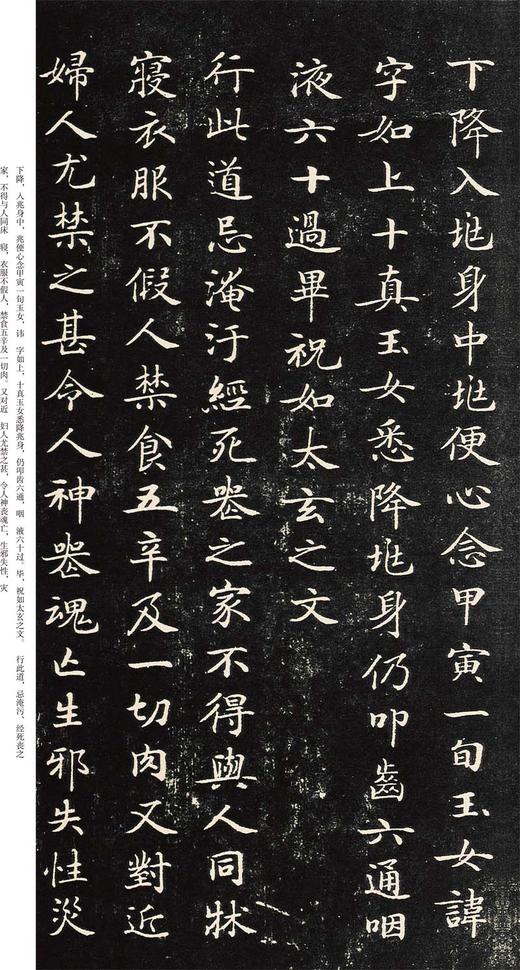 下降入垗身中垗便心念甲寅一旬玉女諱
字如上十真玉女悉降垗身仍叩齒六通咽
液六十過畢祝如太玄之文
行此道忌淹汙經死喪之家不得與人同牀
寢衣服不假人禁食五辛及一切肉又對近
婦人尤禁之甚令人神喪魂亡生邪失性災
下降，入兆身中，兆便心念甲寅一旬玉女，讳　字如上，十真玉女悉降兆身，仍叩齿六通，咽　液六十过。毕，祝如太玄之文。　行此道，忌淹污、经死丧之
家，不得与人同床　寝，衣服不假人，禁食五辛及一切肉。又对近　妇人尤禁之甚，令人神丧魂亡，生邪失性，灾